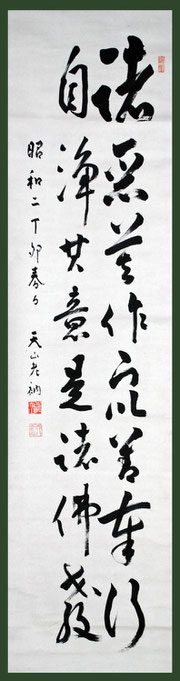 諸惡莫作衆善奉行
自淨其意是諸佛教
昭和二丁卯春日 天山老衲